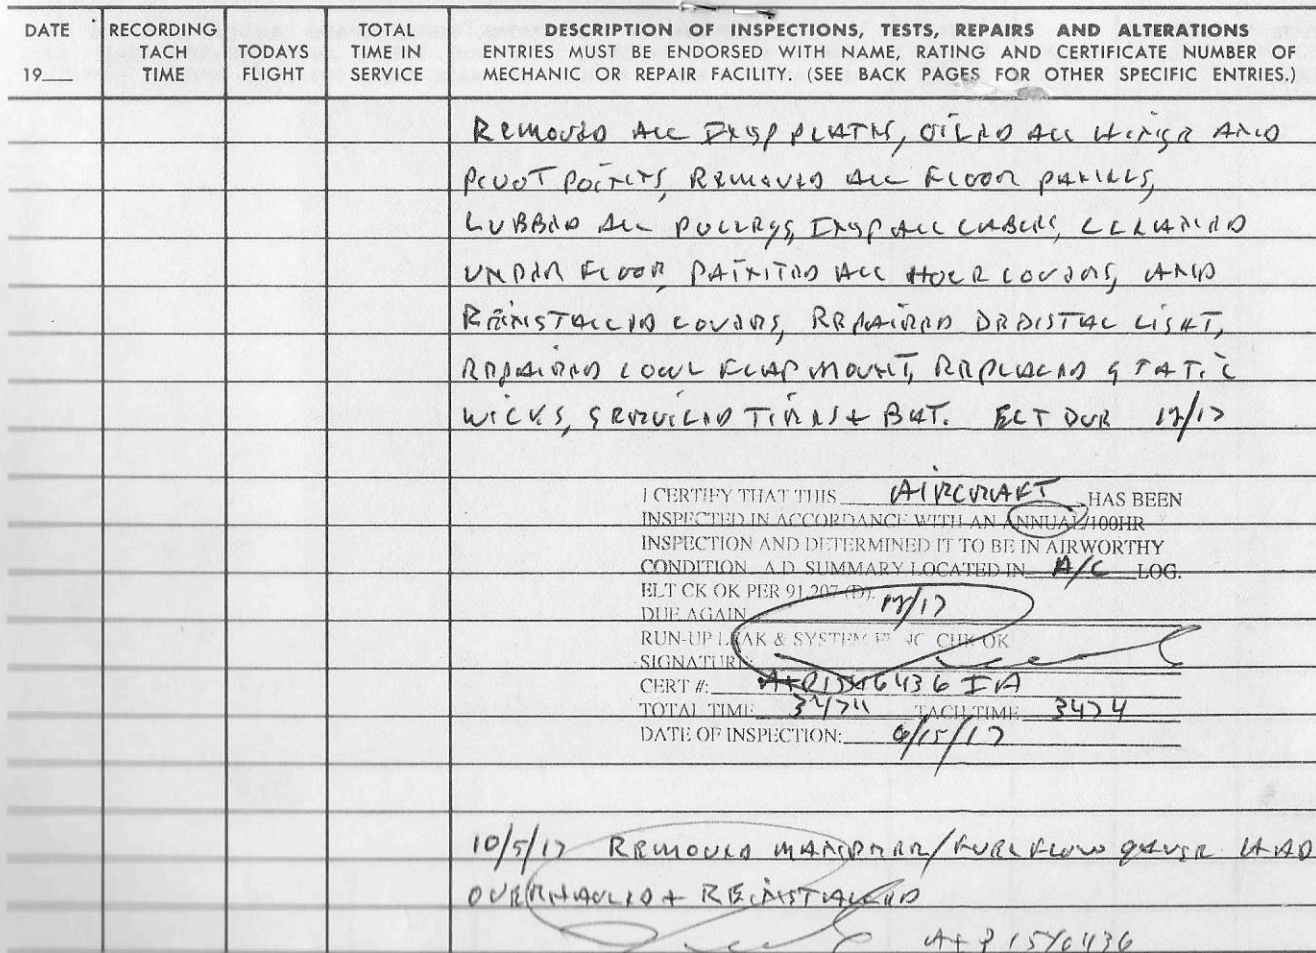 DATE
19
RECORDING
TACH
TIME
TODAYS
FLIGHT
TOTAL
TIME IN
SERVICE
DESCRIPTION OF INSPECTIONS, TESTS, REPAIRS AND ALTERATIONS
ENTRIES MUST BE ENDORSED WITH NAME, RATING AND CERTIFICATE NUMBER OF
MECHANIC OR REPAIR FACILITY. (SEE BACK PAGES FOR OTHER SPECIFIC ENTRIES.)
REMOVED ALL INSP PLATES, OILED ALL HINGE AND
PIVOT POINTS, REMOVED ALL FLOOR PANELS,
LUBBED ALL PULLEYS, INSP ALL CABLES, CLEANED
UNDER FLOOR, PAINTED ALL COVERS, AND
REINSTALLED COVERS, REPAIRED LIGHT,
REPAIRED COWL FLAP MOUNT, REPLACED STATIC
WICKS, SERVICED TIRES + BAT. ELT DUE 12/17
I CERTIFY THAT THIS AIRCRAFT HAS BEEN
INSPECTED IN ACCORDANCE WITH AN ANNUAL/100HR
INSPECTION AND DETERMINED IT TO BE IN AIRWORTHY
CONDITION. A.D. SUMMARY LOCATED IN A/C LOG.
ELT CK OK PER 91.207 (D).
DUE AGAIN
RUN-UP LEAK & SYSTEM FUNC. CHK OK
SIGNATURE:
CERT #: IA
TOTAL TIME TACH TIME 3474
DATE OF INSPECTION: 6/15/17
10/5/17 REMOVED /FUEL FLOW GAUGE HAD
OVERHAULED + REINSTALLED
A+P